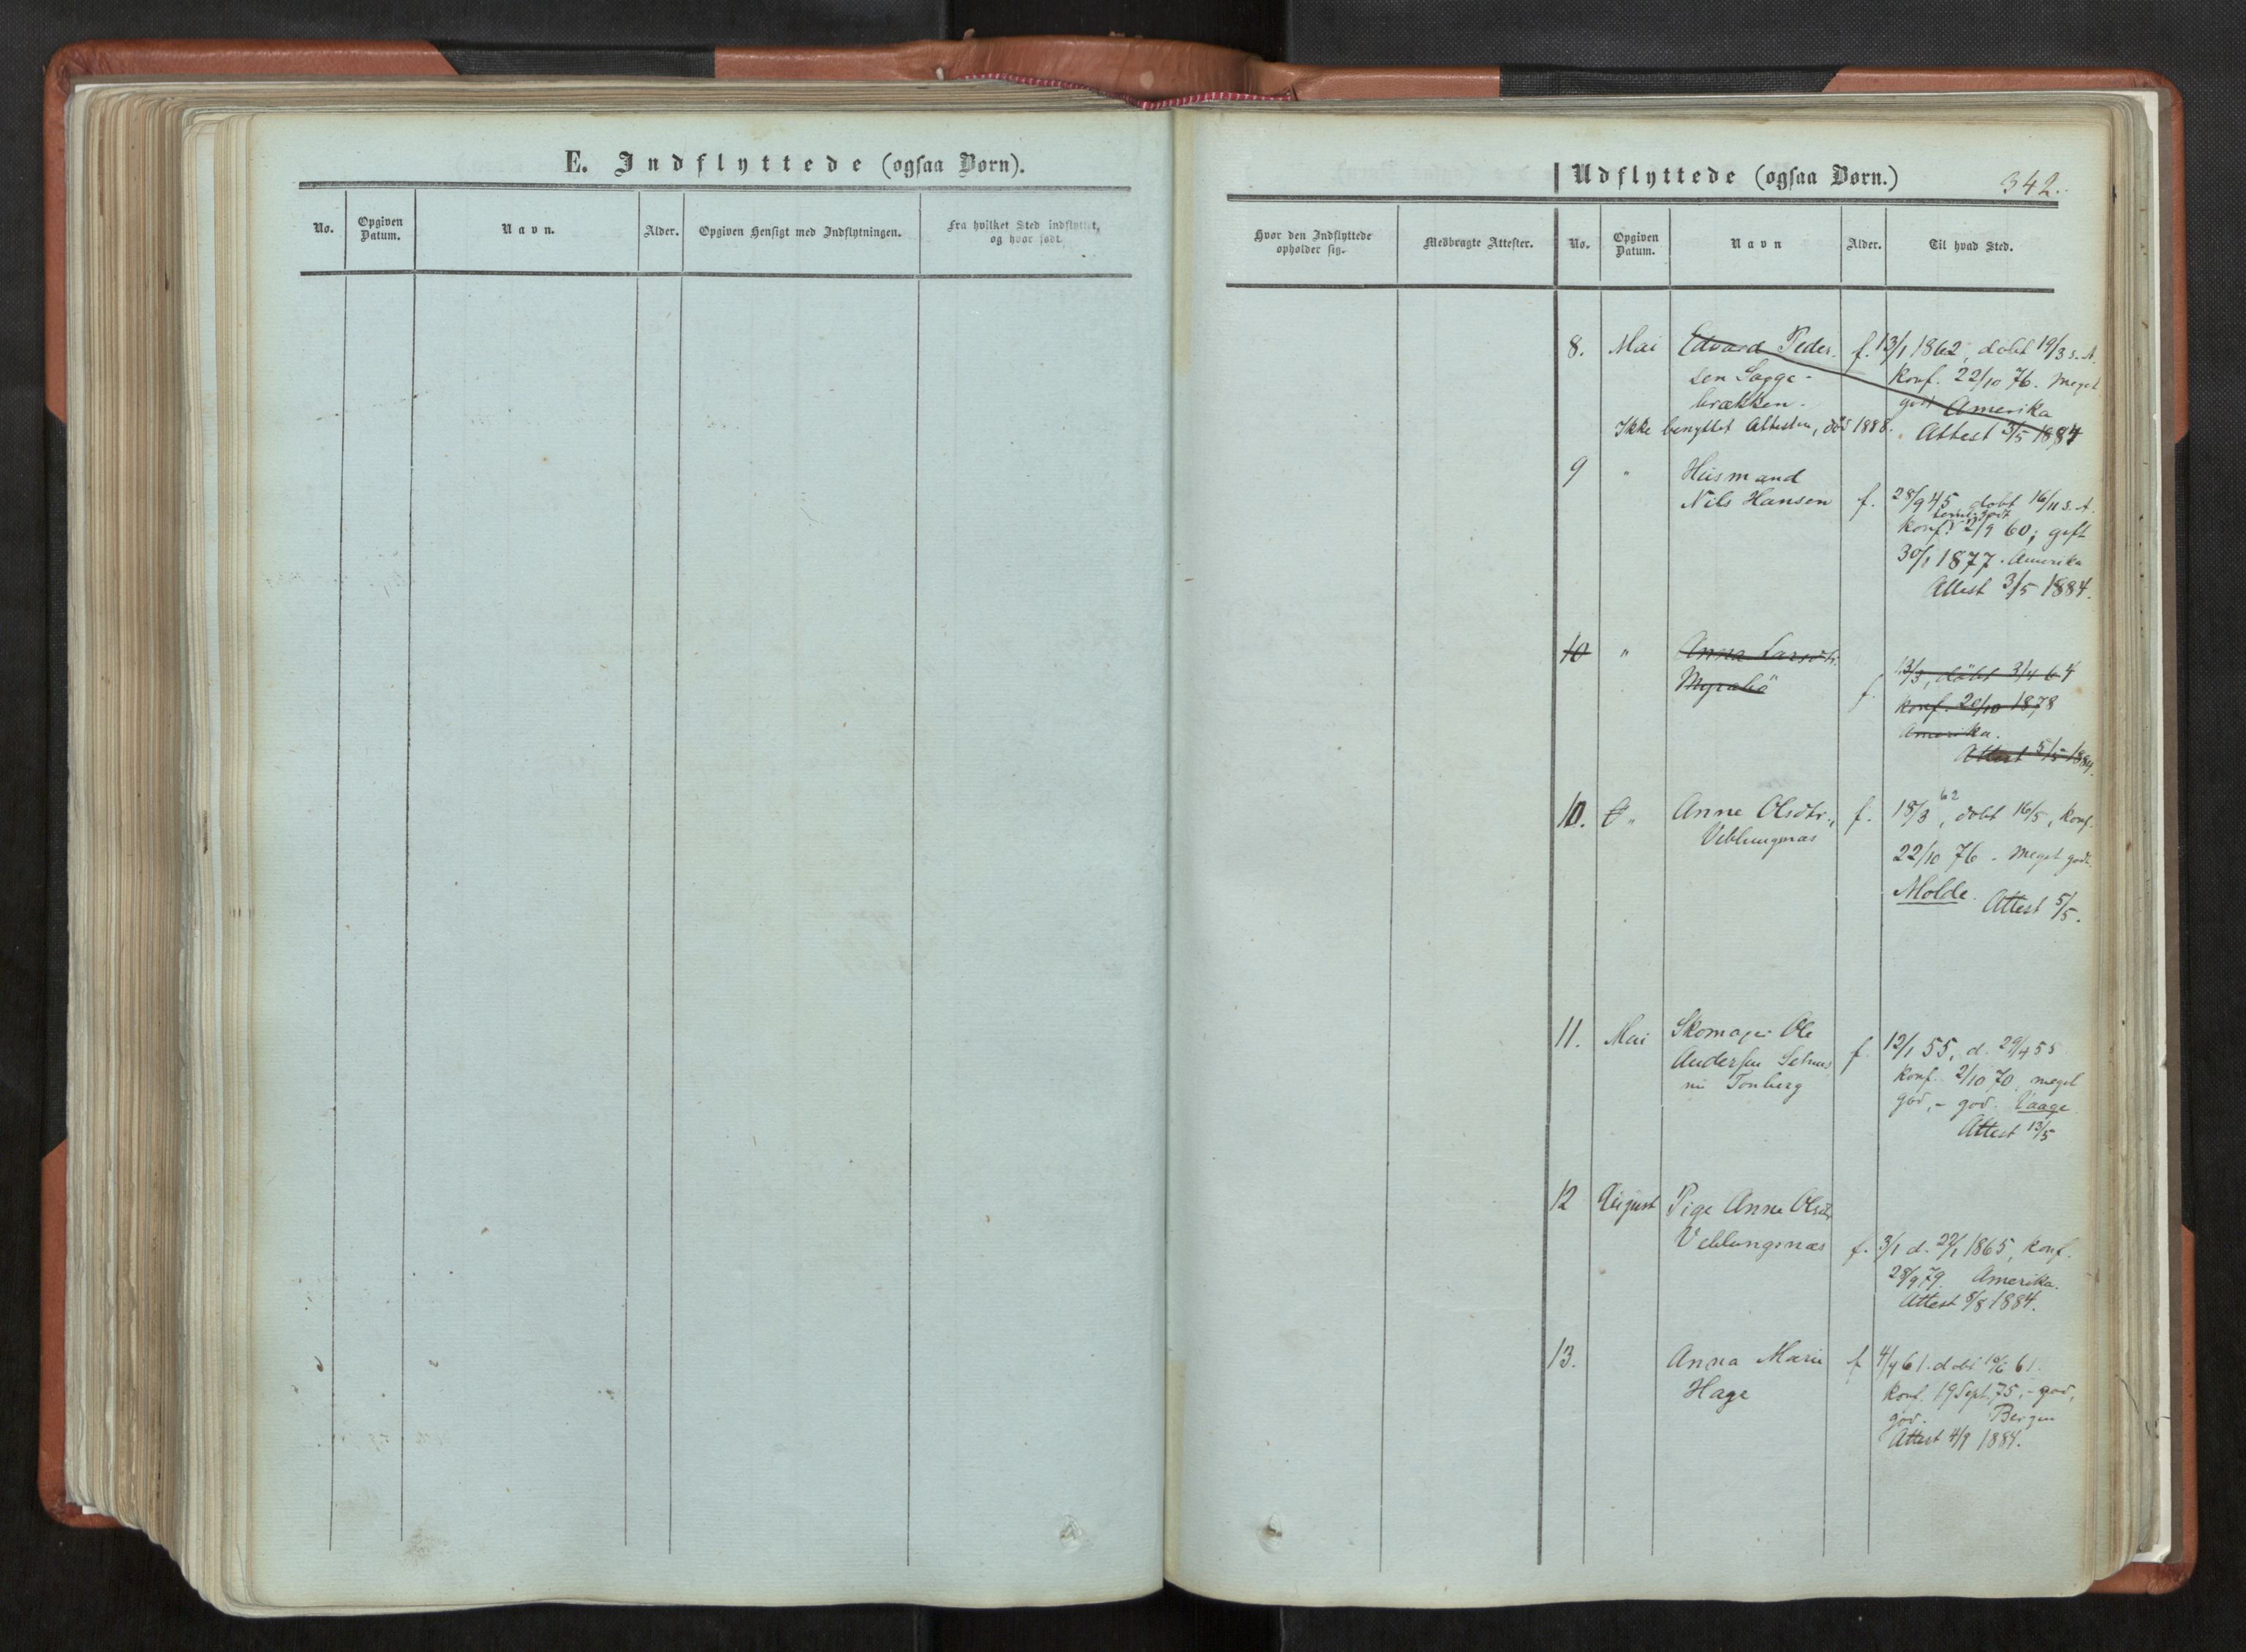 E. Indflyttede (ogsaa Børn).
No.
Opgiven
Datum.
Navn.
Alder.
Opgiven Hensigt med Indflytningen.
Fra hvilket Sted indflyttet,
og hvor født.
Udflyttede (ogsaa Børn.)
342.
Hvor den Indflyttede
opholder sig.
Medbragte Attester.
No.
Opgiven
Datum.
Navn
Alder.
Til hvad Sted.
8. Mai Edvard Peder- f. 13/1 1862, døbt 19/3 s. A.
sen Sogge- Konf. 22/10 76. Meget
brækken. godt Amerika
Ikke benyttet Attesten, død 1888. Attest 3/5 1884
9 " Husmand
Nils Hansen f. 28/9 45, døbt 16/11 s. A.
Konf. 2/9 60; gift
30/1 1877. Amerika
Attest 3/5 1884.
10 " Anna Larsdtr.
Myrabö f. 13/3, döbt 3/4 64
Konf. 20/10 1878
Amerika.
Attest 5/5 1884.
10. " Anne Olsdtr., f. 18/3 62, døbt 16/5, Konf.
Veblungsnæs
22/10 76. Meget godt.
Molde. Attest 5/5.
11. Mai Skomager Ole
Andersen f. 12/1 55, d. 29/4 55
Tonberg Konf. 2/10 70, meget
god, - god. Vaage
Attest 13/5
12 August Pige Anne Olsdtr
Veblungsnæs f. 3/1 d. 22/1 1865, Konf.
28/9 79. Amerika.
Attest 8/8 1884.
13. Anna Marie f 4/4 61. døbt 16/6 61.
Hage Konf. 19 Sept. 75, - god,
god. Bergen
Attest 4/9 1884.